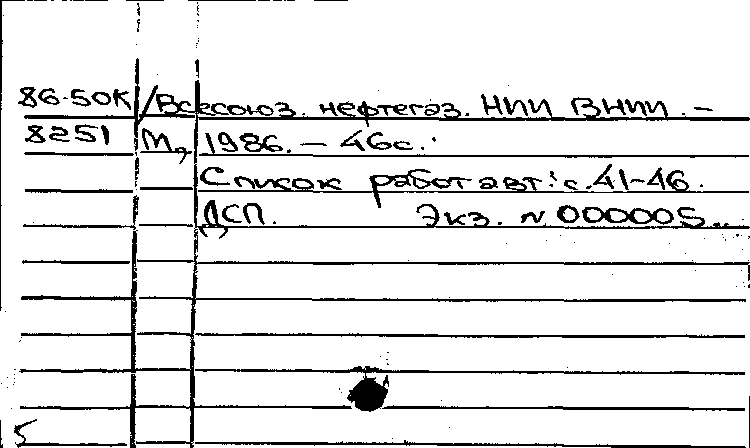 86-50К /Всесоюз. нефтегаз. НИИ ВНИИ. –
8251 М., 1986. – 46с.
Список работ авт.: с.41-46.
ДСП. Экз. N 000005
5